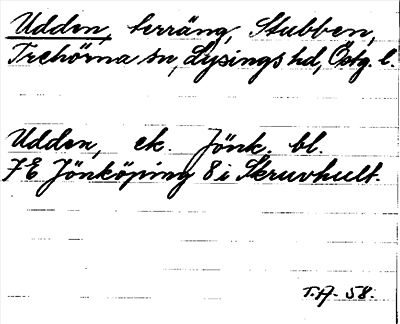 Udden, terräng, Stubben,
Trehörna sn, Lysings hd, Östg. l.
Udden, ek. Jönk. bl.
7E Jönköping 8 i Skruvhult.
T.A. 58.